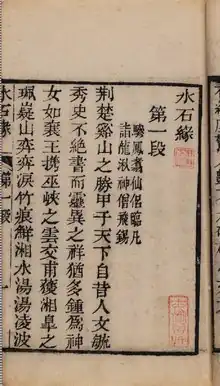 水石緣
第一段
驂鳳翥仙侶臨凡
詣龍湫神僧飛錫
荆楚谿山之勝甲子天下自昔人文毓
秀史不絶書而靈異之祥猶多鍾爲神
女如襄王携巫峽之雲交甫獲湘皐之
珮嶷山弈弈淚竹痕鮮湘水湯湯凌波
水石緣
第一段